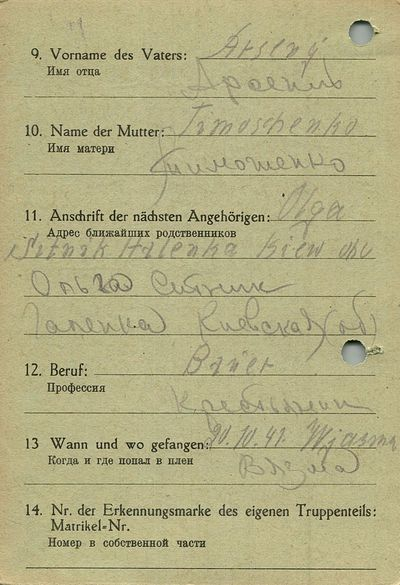 9. Vorname des Vaters: Arseny
Имя отца
Арсений
10. Name der Mutter: Timoschenko
Имя матери
Тимошенко
11. Anschrift der nächsten Angehörigen: Olga
Адрес ближайших родственников
Sitnik Halenka Kiew
Ольга Ситник
Галенка Киевская (об)
12. Beruf: Bauer
Профессия
Крестьянин
13 Wann und wo gefangen: 20.10.41. Wjasma
Когда и где попал в плен
Вязма
14. Nr. der Erkennungsmarke des eigenen Truppenteils:
Matrikel-Nr.
Номер в собственной части